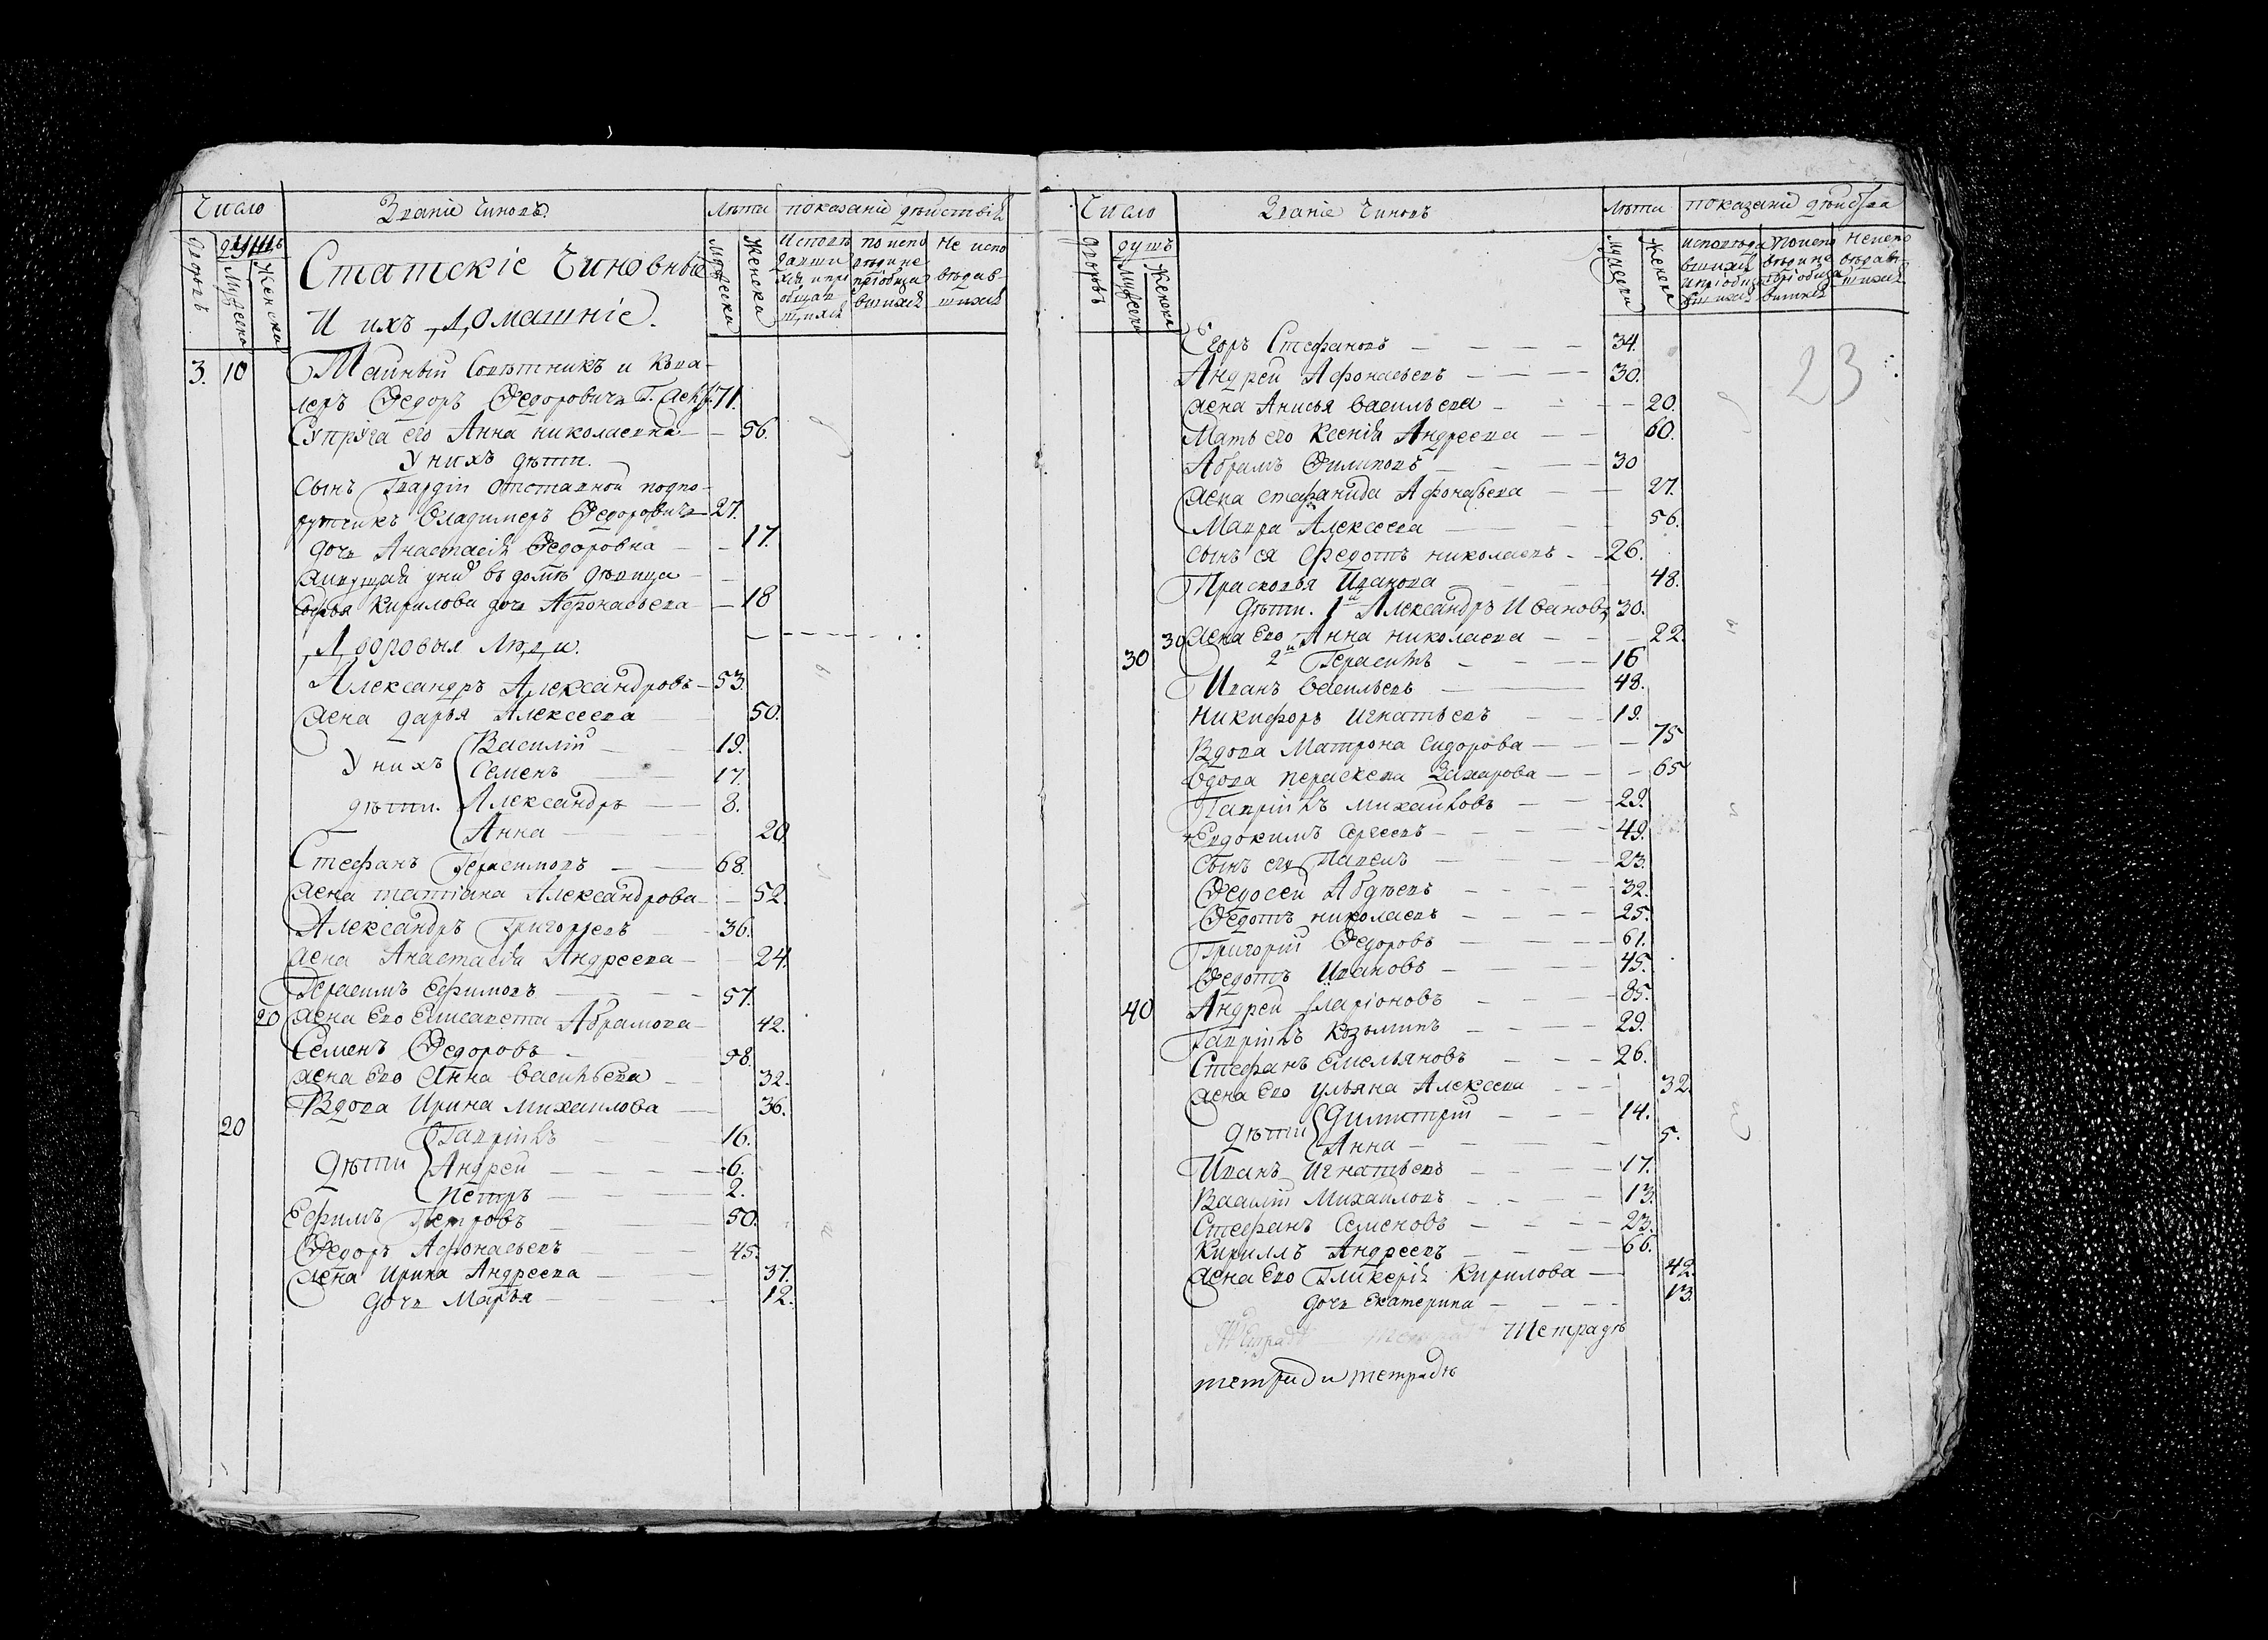 Число Званіе Чиновъ Лѣта показаніе дѣйствій
дворовъ душъ Мужеска Женска
Мужеска Женска
Исповѣдавшихся и пріобщавшихся
по исповѣди не пріобщавшихся
Не исповѣдавшихся
Статскіе Чиновные
И ихъ Домашніе.
3. 10 Тайный Совѣтникъ и Кава-
леръ Федоръ Федоровичь 71.
Супруга его Анна николаевна 56.
У нихъ дѣти.
Сынъ Гвардіи отставной подпо-
рутчикъ Владимеръ Федоровичь 27.
дочь Анастасія Федоровна 17.
живущая у них въ домѣ дѣвица
Софья Кирилова дочь Афонасьева 18
Дворовыя Люди.
Александръ Александровъ 53.
жена дарья Алексеева 50.
У нихъ дѣти. Василій 19.
Семенъ 17.
Александръ 8.
Анна 20.
Стефанъ Герасимовъ 68.
жена татіана Александрова 52.
Александръ Григорьевъ 36.
жена Анастасія Андреева 24.
Герасимъ Ефимовъ 57.
20 жена Его Елисавета Абрамова 42.
Семенъ Федоровъ 98.
жена Его Анна васильева 32.
Вдова Ирина михаилова 36.
20 дѣти Гавріилъ 16.
Андрей 6.
петръ 2.
Ефимъ Петровъ 50.
Федоръ Афонасьевъ 45.
жена Ирина Андреева 37.
дочь Марья 12.
Число Званіе Чиновъ Лѣта показаніе дѣйства
дворовъ душъ Мужеска Женска
Мужеска Женска
исповѣдавшихся и пріобщавшихся
по исповѣди не пріобщавшихся
не исповѣдавшихся
23
Егоръ Стефановъ 34.
Андрей Афонасьевъ 30.
жена Анисья васильева 20.
Мать его Ксенія Андреева 60.
Абрамъ Филиповъ 30
жена стефанида Афонасьева 27.
Мавра Алексеева 56.
сынъ ея Федотъ николаевъ 26.
Прасковья Иванова 48.
дѣти. 1й Александръ Ивановъ 30.
30 жена Его Анна николаева 22.
30 2й Герасимъ 16
Иванъ васильевъ 48.
Никифоръ игнатьевъ 19.
Вдова Матрона сидорова 75
вдова пераскева Захарова 65
Гавріилъ михаиловъ 29.
Евдокимъ Сергеевъ 49.
Сынъ его Павелъ 23.
Федосей Авдѣевъ 32.
Федотъ николаевъ 25.
Григорій Федоровъ 61.
Федотъ Ивановъ 45.
40 Андрей Иларіоновъ 85.
Гавріилъ козьминъ 29.
Стефанъ Емельяновъ 26.
жена Его ульяна Алексеева 32.
дѣти Димитрій 14.
Анна 5.
Иванъ Игнатьевъ 17.
Василій Михаиловъ 13.
Стефанъ Семеновъ 23.
Кириллъ Андреевъ 66.
жена Его Гликерія Кирилова 42.
дочь екатерина 13.
тетрадь
тетради тетрадь